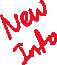 New
Info